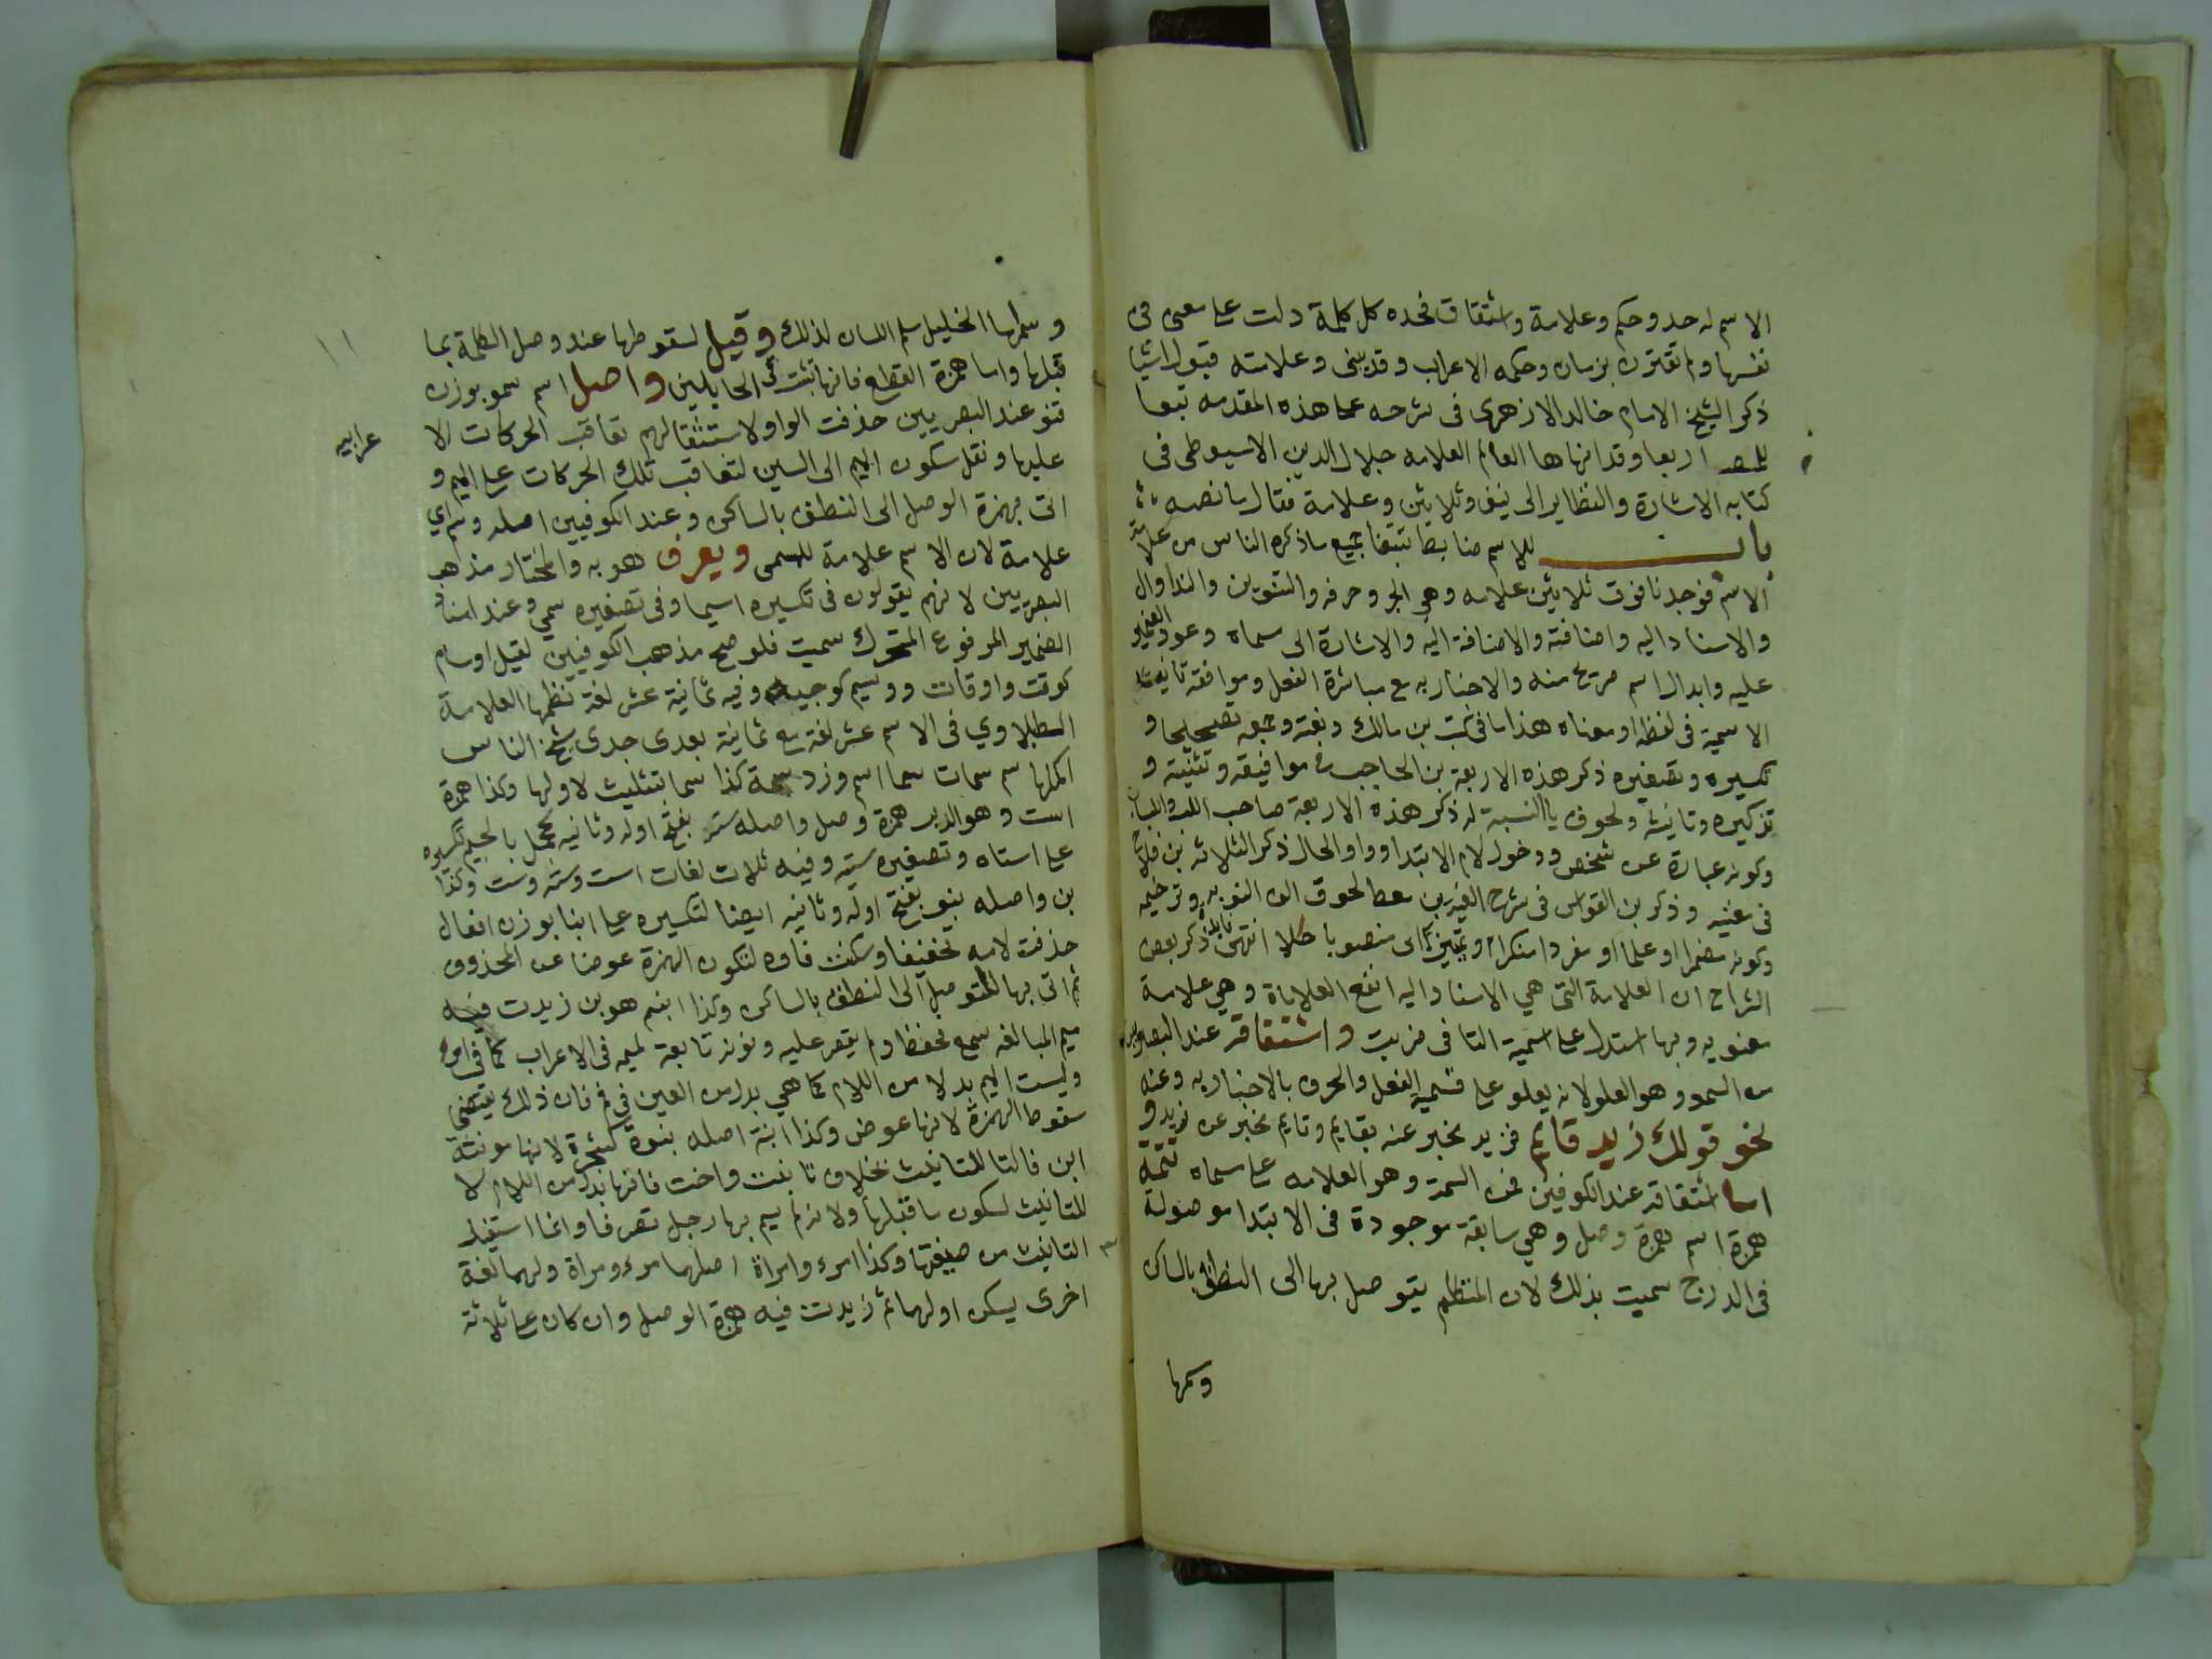 الاسم له حد وحكم وعلامة واشتقاق فحده كل كلمة دلت على معنى فى
نفسها ولم تقترن بزمان وحكمه الاعراب وقد يبنى وعلامته قبول اشيا
ذكر الشيخ الامام خالد الازهرى فى شرحه على هذه المقدمه تبعا
للمص اربعا وقد انهاها العالم العلامه جلال الدين الاسيوطى فى
كتابه الاشارة والنظاير الى نيف وثلاثين وعلامة فقال ما نصه
للاسم ضابط تتبعنا جميع ما ذكره الناس من علامة
الاسم فوجدنا فوق ثلاثين علامه وهى الجر وحرفه والتنوين والندا وال
والاسناد اليه واضافته والاضافة اليه والاشارة الى مسماه وعود الضمير
عليه وابدال اسم صريح منه والاخبار به مع مباشرة الفعل وموافقة ثابت
الاسمية فى لفظه او معناه هذا ما فى كتب بن مالك ونعته وجمعه تصحيحا و
تكسيره وتصغيره ذكر هذه الاربعة بن الحاجب فى وافيته وتثنيته و
تذكيره وتانيثه ولحوق يا النسبة له ذكر هذه الاربعة صاحب اللب واللباب
وكونه عبارة عن شخص ودخول لام الابتدا وواو الحال ذكر الثلاثه بن فلاح
فى مغنيه وذكر بن القواس فى شرح الفية بن معط لحوق الف الندبه وترخيمه
وكونه مضمرا او علما او مفردا منكرا او تمييزا او منصوبا حالا انتهى فايدة ذكر بعض
الشراح ان العلامة التى هي الاسناد اليه انفع العلامات وهي علامة
معنويه وبها استدل على اسمية التا فى ضربت واشتقاقه عند البصريين
من السمو وهو العلو لانه يعلو على قسميه الفعل والحرف بالاخبار به وعنه
نحو قولك زيد قايم فزيد مخبر عنه بقايم وقايم مخبر عن زيد و
اما اشتقاقه عند الكوفين فمن السمة وهو العلامه على مسماه تتمة
همزة اسم همزة وصل وهي سابقة موجودة فى الابتدا موصولة
فى الدرج سميت بذلك لان المتكلم يتوصل بها الى النطق بالساكن
وسماها
١١
وسماها الخليل سلم اللسان لذلك وقيل لسقوطها عند وصل الكلمة بما
قبلها واما همزة القطع فانها تثبت فى الحالين واصل اسم سمو بوزن
قنو عند البصريين حذفت الواو لاستثقالهم تعاقب الحركات الا
عرابيه
عليها ونقل سكون الميم الى السين لتعاقب تلك الحركات على الميم و
اتى بهمزة الوصل الى النطق بالساكن وعند الكوفيين اصله وسم اي
علامة لان الاسم علامة للمسمى ويعرف هو به والمختار مذهب
البصريين لانهم يقولون فى تكسيره اسما وفى تصغيره سمي وعند اسناد
الضمير المرفوع المتحرك سميت فلو صح مذهب الكوفيين لقيل اوسام
كوقت واوقات ووسيم كوجيه وفيه ثمانية عشر لغة نظمها العلامة
الطبلاوي فى الاسم عشر لغة مع ثمانية بعدى جدى شيخ الناس
اكملها سم سمات سما اسم وزد سمة كذا سما بتثليث لاولها وكذا همزة
است وهو الدبر همزة وصل واصله سته بفتح اوله وثانيه كجمل بالجيم لتكسيره
على استاه وتصغيره ستيه وفيه ثلاث لغات است وسته وست وكذا
بن واصله بنو بفتح اوله وثانيه ايضا لتكسيره على ابنا بوزن افعال
حذفت لامه تخفيفا وسكنت فاوه لتكون الهمزة عوضا عن المحذوف
ثم اتى بها للتوصل الى النطق بالساكن وكذا ابنم هو بن زيدت فيه
ميم المبالغه سمع تحفظ ولم يقس عليه ونونه تابعة لميمه فى الاعراب كما فى امرء
وليست الميم بدلا من اللام كما هي بدل من العين في فم فان ذلك يقتضي
سقوط الهمزة لانها عوض وكذا ابنة اصله بنوة كشجرة لانها مونثة
ابن فالتا للتانيث بخلاف تا بنت واخت فانها بدل من اللام لا
للتانيث لسكون ما قبلها ولانه لم يسم بها رجل تصرفا وانما استفيد
التانيث من صيغتها وكذا امرء وامراة اصلهما مرء ومراة ولهما لغة
اخرى يسكن اولهما ثم زيدت فيه همزة الوصل وان كان على ثلاثة